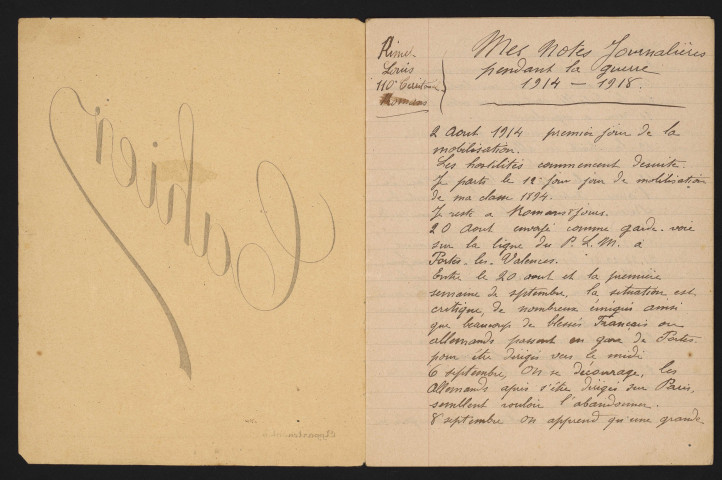 Cahier
Louis
110e
Romans
Mes Notes Journalières
pendant la guerre
1914 - 1918.
2 Aout 1914 premier jour de la
mobilisation.
Les hostilités commencent desuite.
Je parts le 12e jour jour de mobilisation
de ma classe 1894.
Je reste a Romans 8 jours.
20 Aout envoyé comme garde-voie
sur la ligne du P. L. M. à
Portes-les-Valences.
Entre le 20 aout et la première
semaine de septembre, la situation est
critique, de nombreux émigrés ainsi
que beaucoup de blessés Français ou
allemands passent en gare de Portes
pour être dirigés vers le midi
6 septembre, On se décourage, les
Allemands après s'être dirigés sur Paris,
semblent vouloir l'abandonner.
8 septembre On apprend qu'une grande